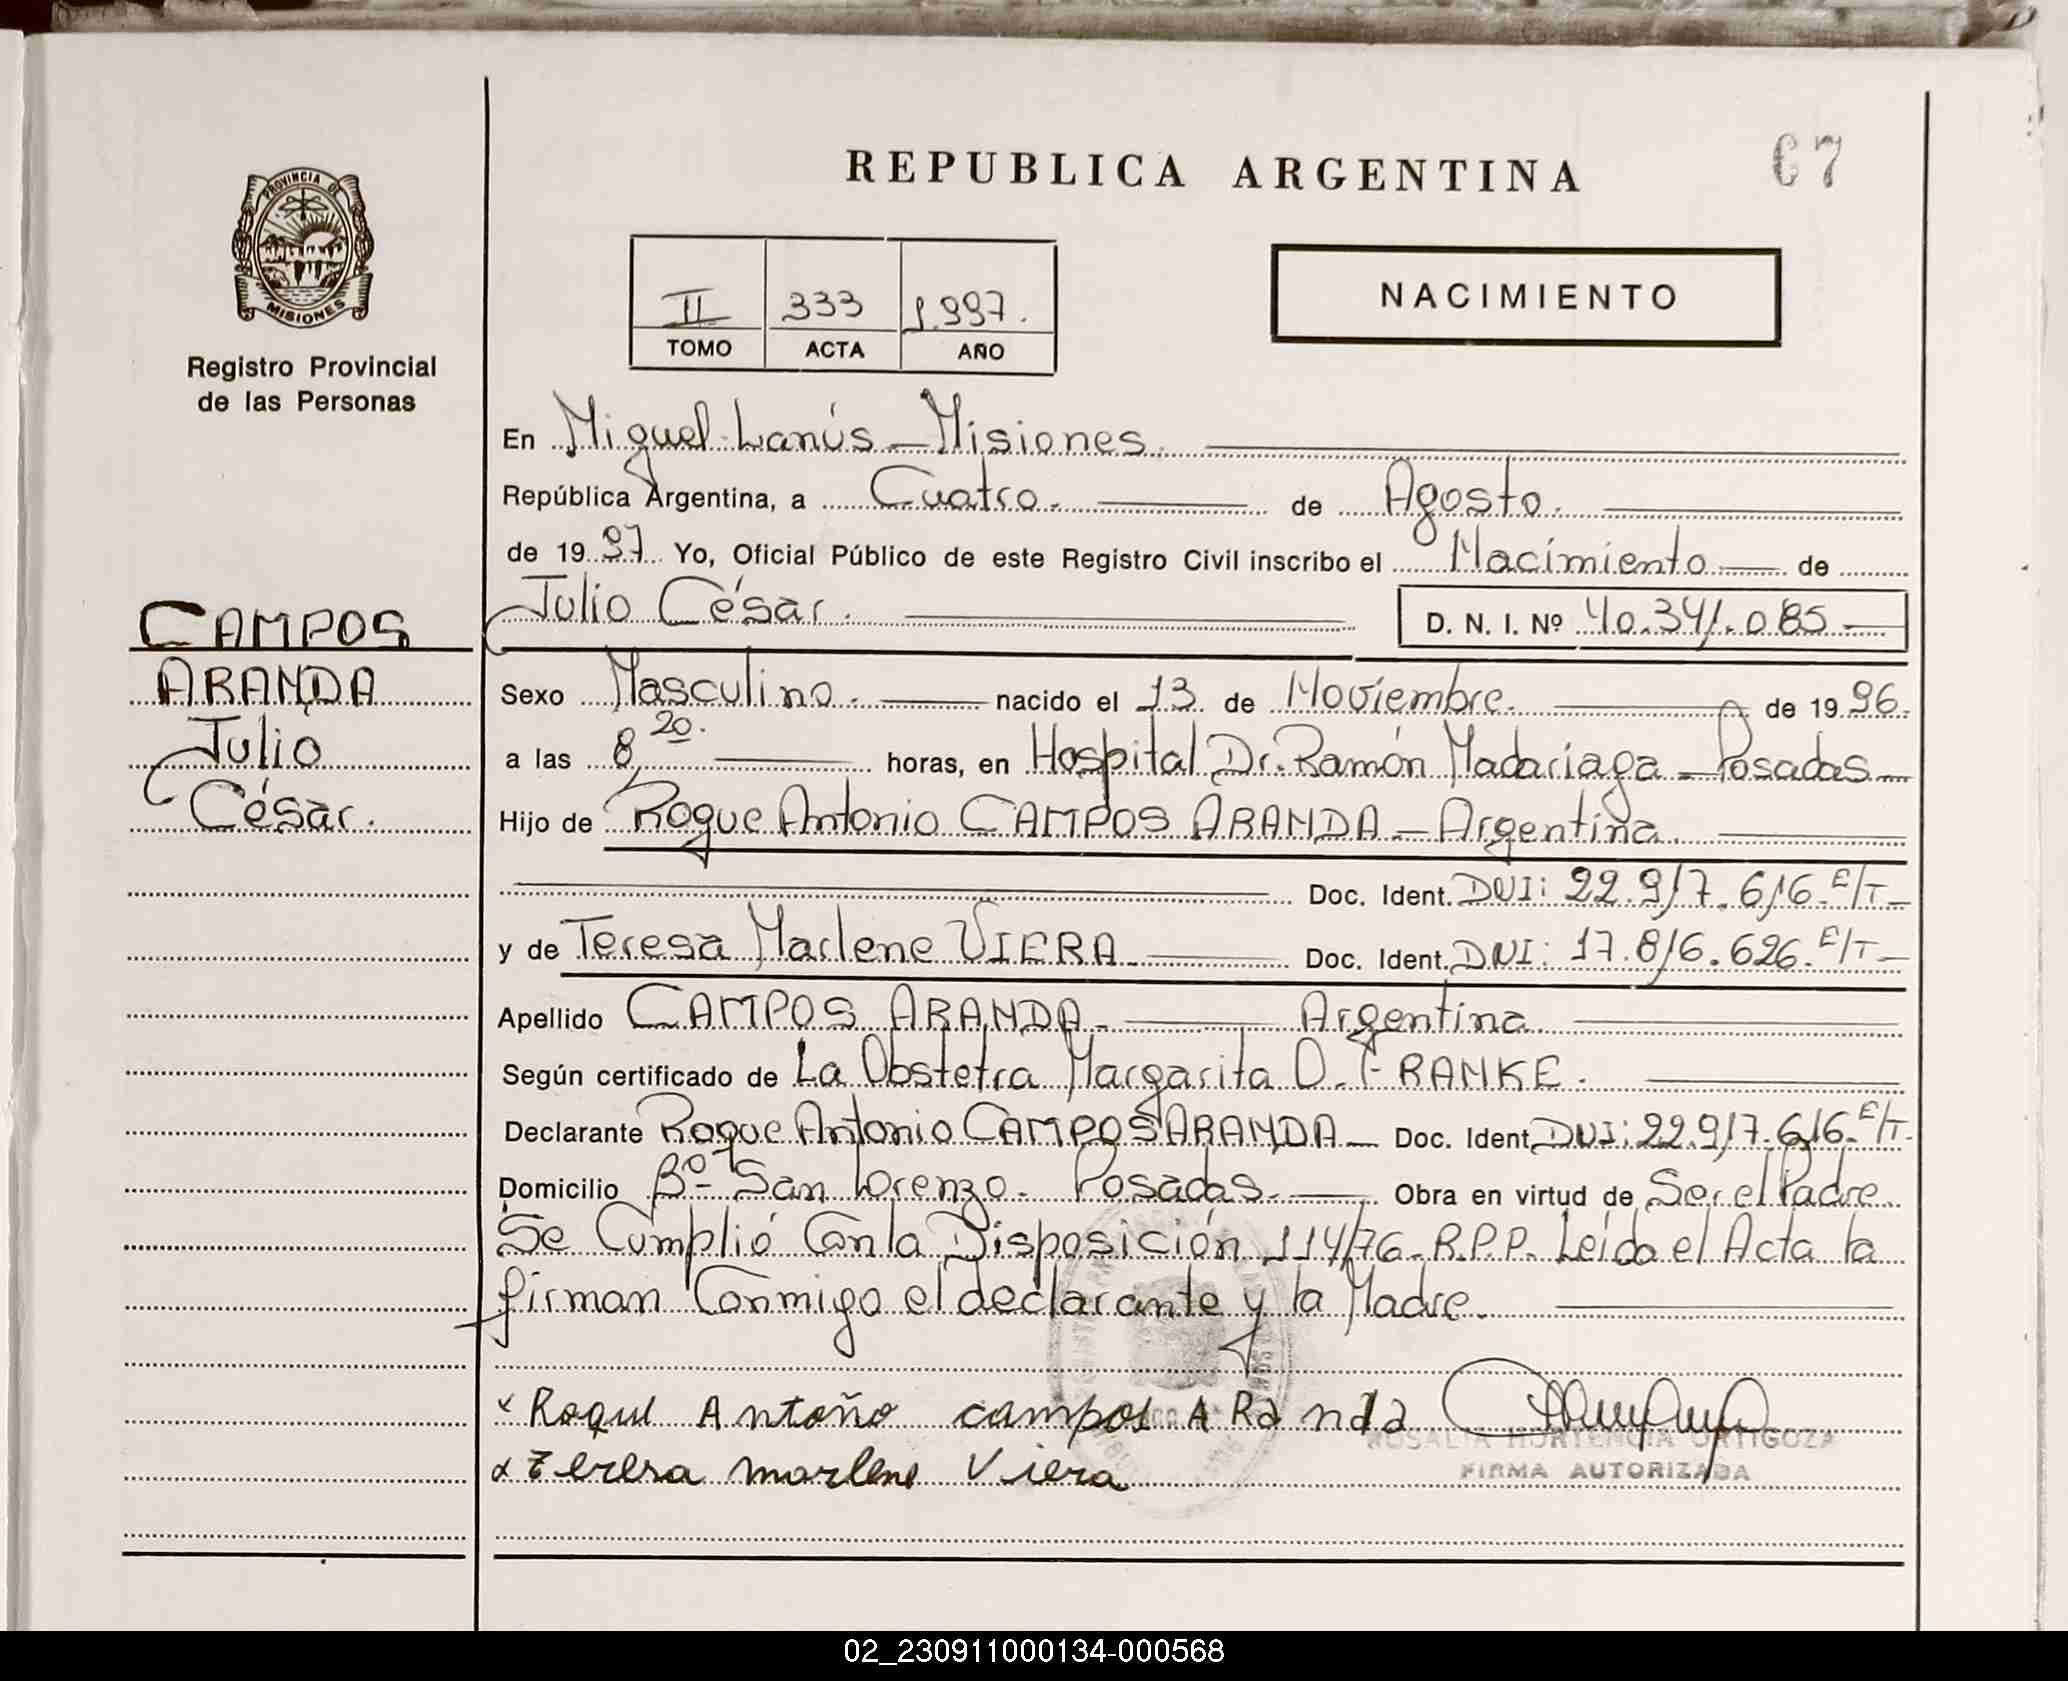 REPUBLICA ARGENTINA
67
PROVINCIA DE
MISIONES
Registro Provincial
de las Personas
II 333 1.997.
TOMO ACTA AÑO
NACIMIENTO
En Miguel Lanús - Misiones.
República Argentina, a Cuatro. de Agosto.
de 19 97 Yo, Oficial Público de este Registro Civil inscribo el Nacimiento de
Julio César. D. N. I. Nº 40.341.085
CAMPOS
ARANDA
Julio
César.
Sexo Masculino. nacido el 13 de Noviembre. de 19 96.
a las 8 20. horas, en Hospital Dr. Ramón Madariaga - Posadas
Hijo de Roque Antonio CAMPOS ARANDA - Argentina.
Doc. Ident. DNI: 22.917.616. E/T
y de Teresa Marlene VIERA Doc. Ident. DNI: 17.816.626. E/T
Apellido CAMPOS ARANDA - Argentina
Según certificado de La Obstetra Margarita O. FRANKE.
Declarante Roque Antonio CAMPOS ARANDA - Doc. Ident. DNI: 22.917.616. E/T.
Domicilio Bº San Lorenzo. Posadas. Obra en virtud de Ser el Padre.
Se Cumplió Con la Disposición 114/76 - R.P.P. Leída el Acta la
firman Conmigo el declarante y la Madre.
x Roque Antoño campos ARanda
ROSALIA HORTENCIA ORTIGOZA
x Teresa marlene Viera
FIRMA AUTORIZADA
02_230911000134-000568